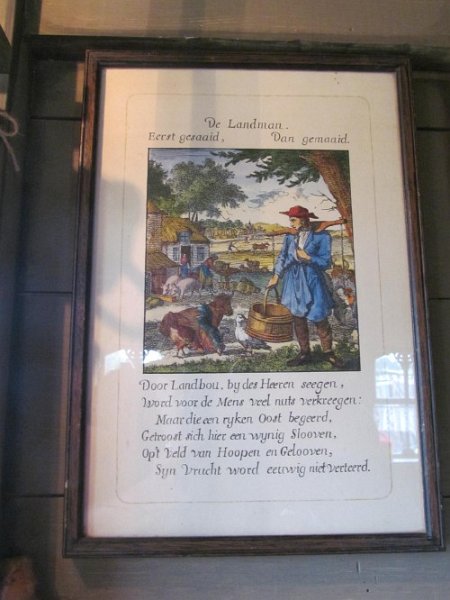 De Landman.
Eerst gesaaid, Dan gemaaid.
Door Landbou, by des Heeren seegen,
Word voor de Mens veel nuts verkreegen:
Maar die een ryken Oost begeerd,
Getroost sich hier een wynig Slooven,
Op't Veld van Hoopen en Gelooven,
Syn Vrucht word eeuwig niet verteerd.